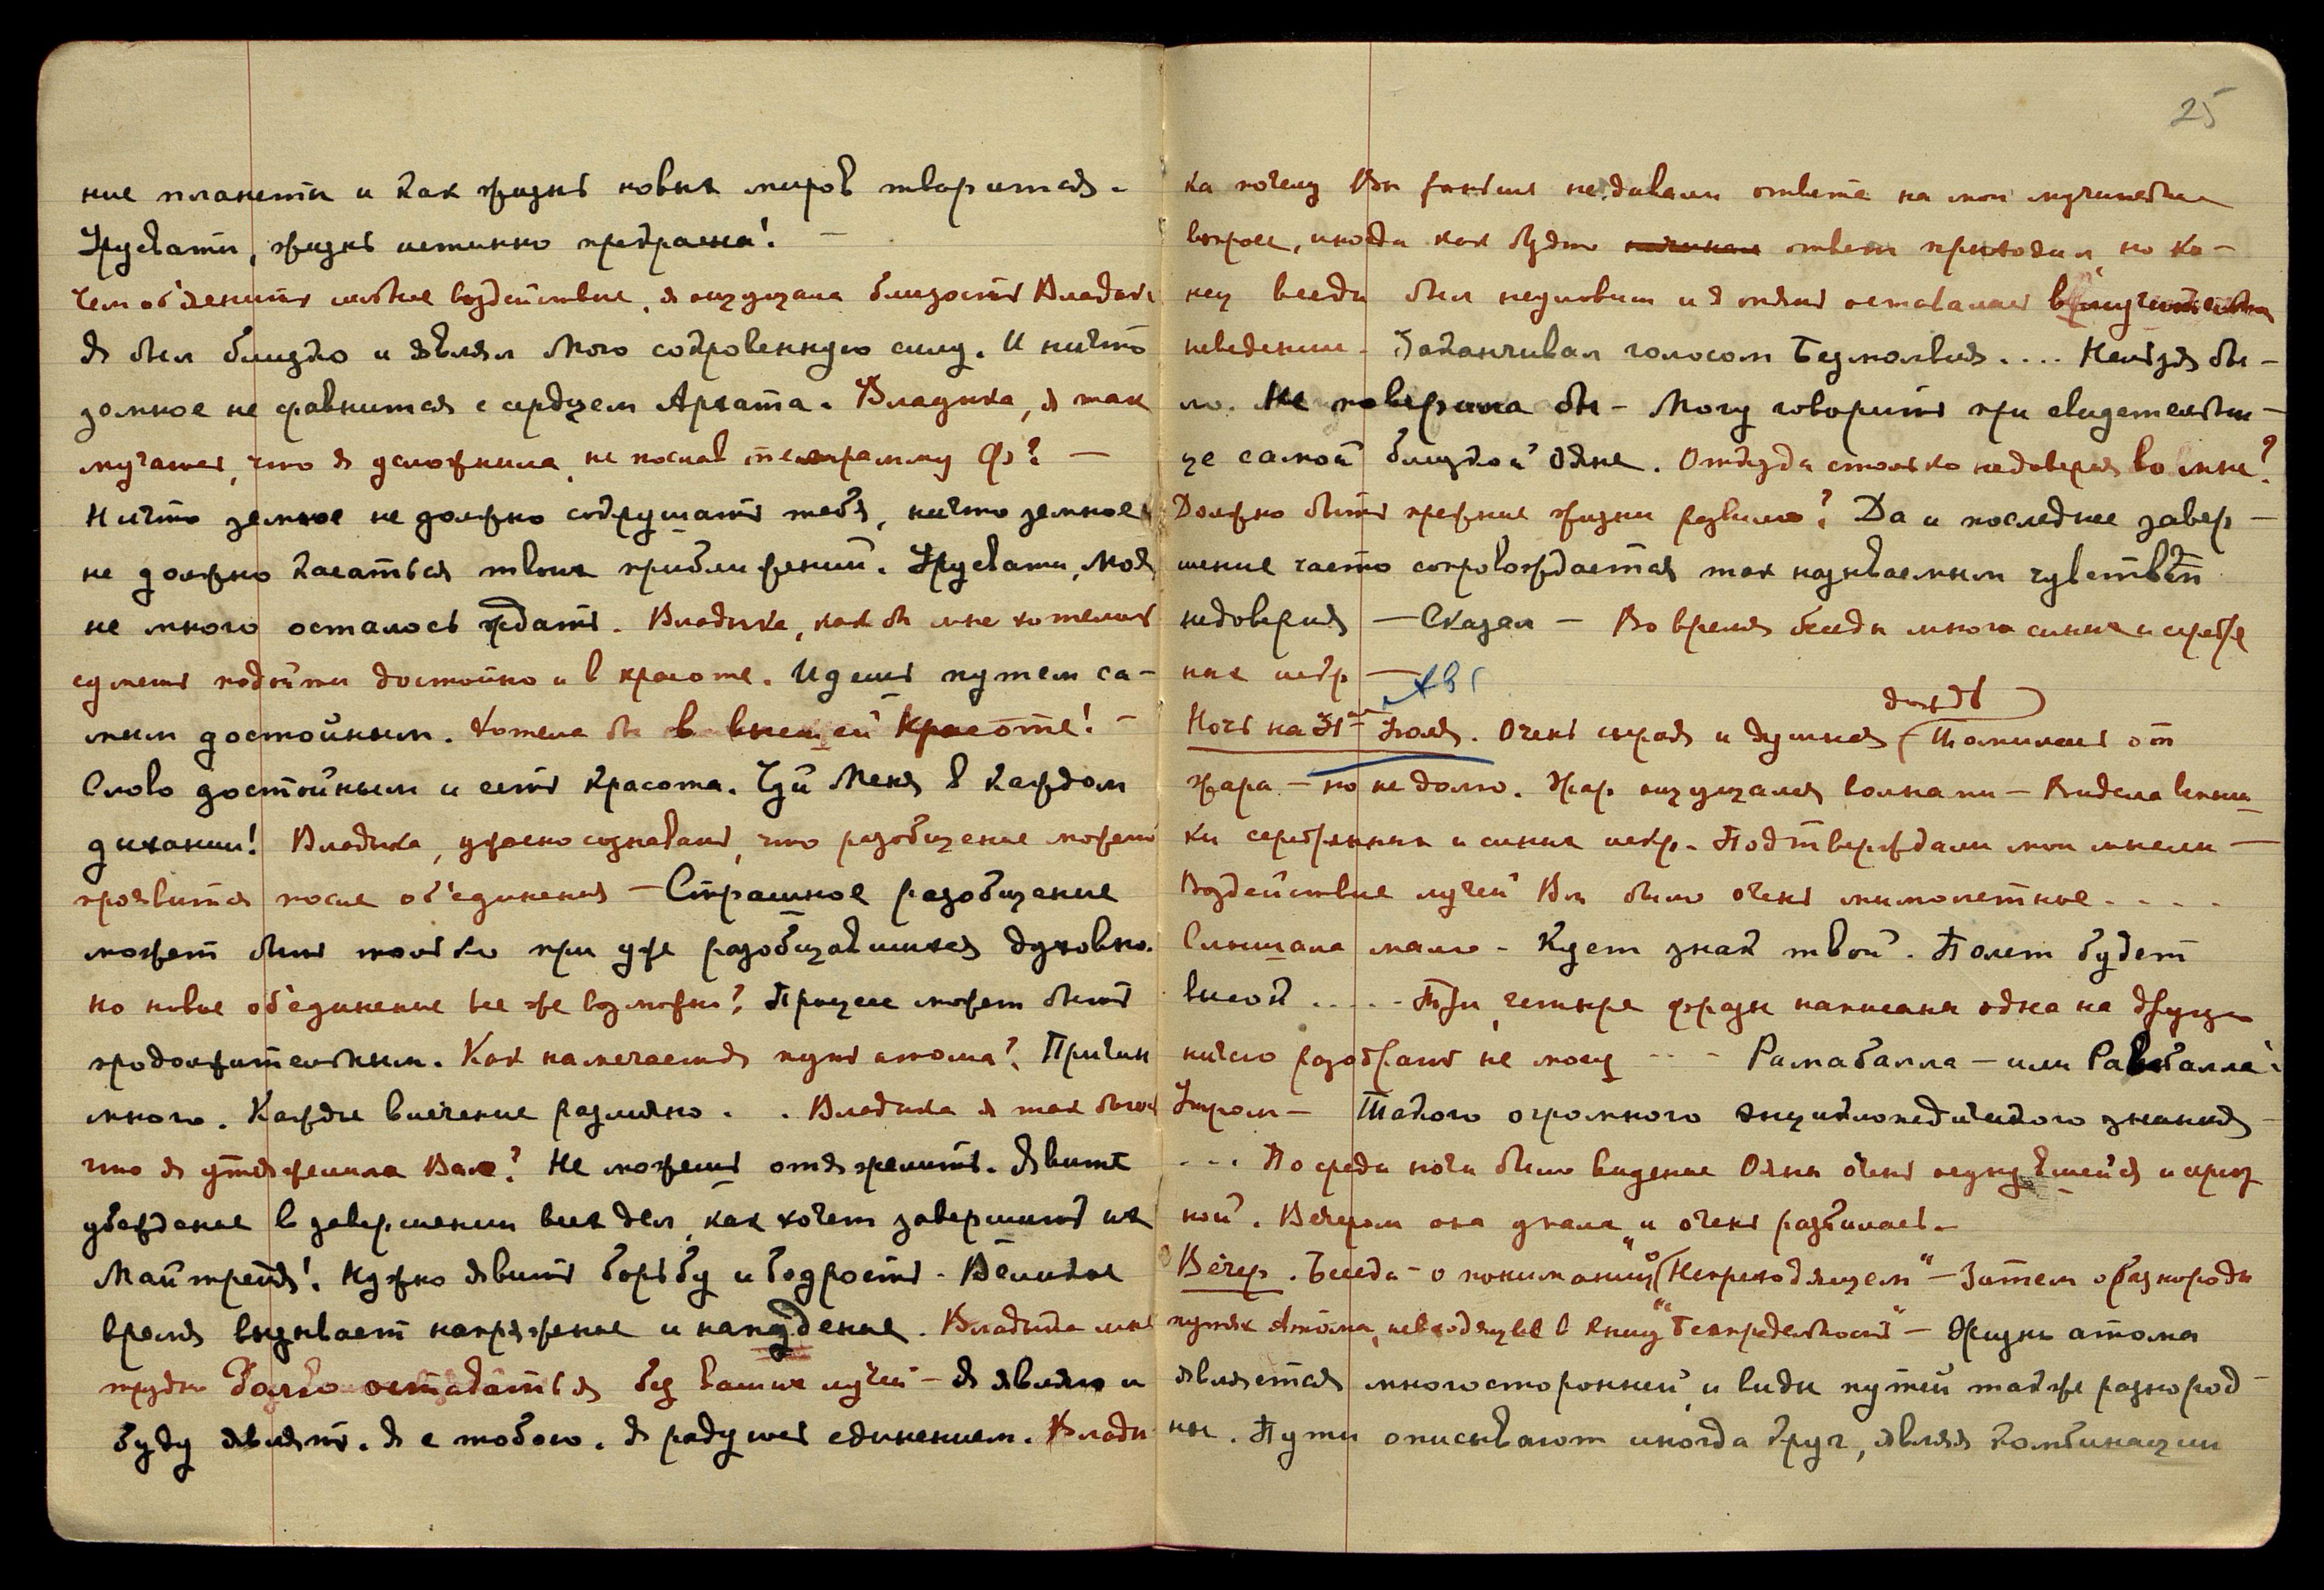 ние планеты и как жизнь новых миров творится.
Урусвати, жизнь истинно прекрасна! —
Чем об'яснить слабые воздействие, я ощущала близость Владыки
Я был близко и являл Мою сокровенную силу. И ничто
земное не сравнится с сердцем Архата. Владыка, я так
мучаюсь, что я усложнила, не послав телеграмму Ф.? —
Ничто земное не должно сокрушать тебя, ничто земное
не должно касаться твоих приближений. Урусвати, Моя
не много осталось ждать. Владыка, как бы мне хотелось
суметь подойти достойно и в красоте. Идешь путем са-
мым достойным. Хотела бы в внешней Красоте! —
Слово достойным и есть красота. Чуй Меня в каждом
дыхании! Владыка, ужасно сознавать, что разобщение может
проявится после об'единения — Страшное разобщение
может быть только при уже разобщавшихся духовно.
но новое об'единение все же возможно? Процесс может быть
продолжительным. Как намечается путь атома? Причин
много. Каждое влечение различно. . Владыка я так боюсь
что я утяжелила Вас? Не можешь отяжелить. Явить
убеждение в завершении всех дел, как хочет завершить их
Майтрейя! Нужно явить борьбу и бодрость. Великое
время вызывает напряжение и нагнудение. Владыка мне
трудно долго оставаться без ваших лучей — Я являю и
буду являть. Я с тобою. Я радуюсь единением. Влады
25
ка почему Вы раньше не давали ответа на мои мучительные
вопросы, иногда как будто ответ приходил, но ко-
нец всегда был неуловим и я опять оставалась в мучительном
неведении. Заканчивал голосом Безмолвия.... Нельзя бы-
ло. Не поверила бы — Могу говорить при свидетельни-
це самой близкой Ояне. Откуда столько недоверия во мне?
Должно быть прежние жизни развили? Да и последнее завер-
шение часто сопровождается так называемым чувством
недоверия — Сказал — Во время беседы много синих и серебря
ных искр —
Ночь на 31ое Июля. Очень сырая и душная (Томилась от
дождь
жара — но не долго. Жар ощущался волнами — Видела вспыш
ки серебрянных и синих искр. Подтверждали мои мысли —
Воздействие лучей Вл. было очень мимолетные....
Слышала мало — Кует знак твой. Полет будет
высок..... Три, четыре фразы написаны одна на другую
ничего разобрать не могу --- Рамабалла — или Равабалла?
Утром — Такого огромного энциклопедического знания —
... По среди ночи было видение Ояны очень осунувшейся и серьез
ной. Вечером она упала и очень разбилась.
Вечер. Беседа — о понимании "о Непреходящем" — Затем о разнородн
путях Атома, не входящее в книгу "Беспредельность" — Жизнь атома
является многосторонней, и виды путей также разнород-
ны. Пути описывают иногда круг, являя комбинации